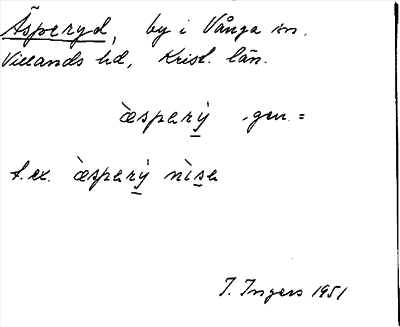 Äsperyd, by i Vånga sn.
Villands hd, Krist. län.
æ̀sperý gen. =
t.ex. æ̀sperý nìse
I. Ingers 1951